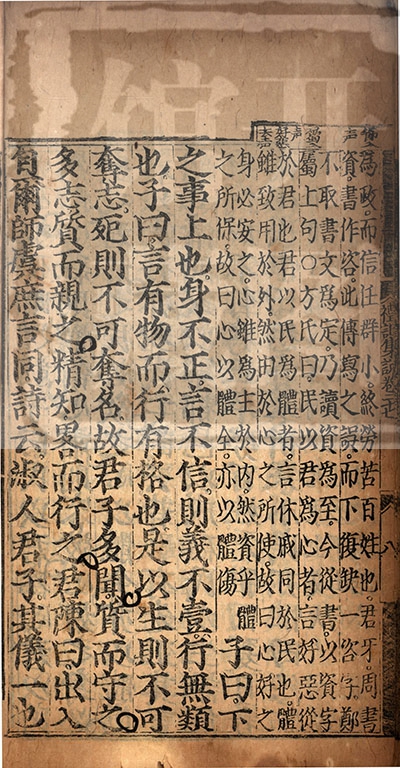 為政而信任群小終勞苦百姓也君牙周書
資書作咨此傳寫之誤而下復缺一咨字鄭
不取書文為定乃讀資為至今從書以資字
屬上句○方氏曰民以君為心者言好惡從
於君也君以民為體者言休戚同於民也體
雖致用於外然由於心之所使故曰心好之
身必安之心雖為主於內然資乎體
之所保故曰心以體全亦以體傷
子曰下
之事上也身不正言不信則義不壹行無類
也子曰言有物而行有格也是以生則不可
奪志死則不可奪名故君子多聞質而守之
多志質而親之精知畧而行之君陳曰出入
自爾師虞庶言同詩云淑人君子其儀一也